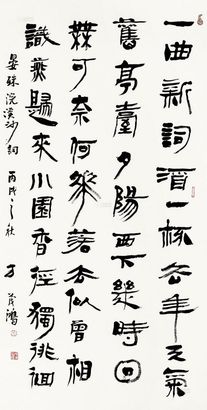 一曲新詞酒一杯去年天氣
舊亭臺夕陽西下幾時回
無可奈何花落去似曾相
識燕歸來小園香徑獨徘徊
晏殊浣溪沙詞 丙戌之